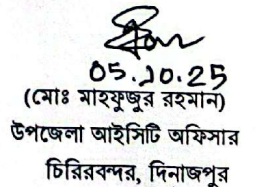 05.10.25
(মোঃ মাহফুজুর রহমান)
উপজেলা আইসিটি অফিসার
চিরিরবন্দর, দিনাজপুর